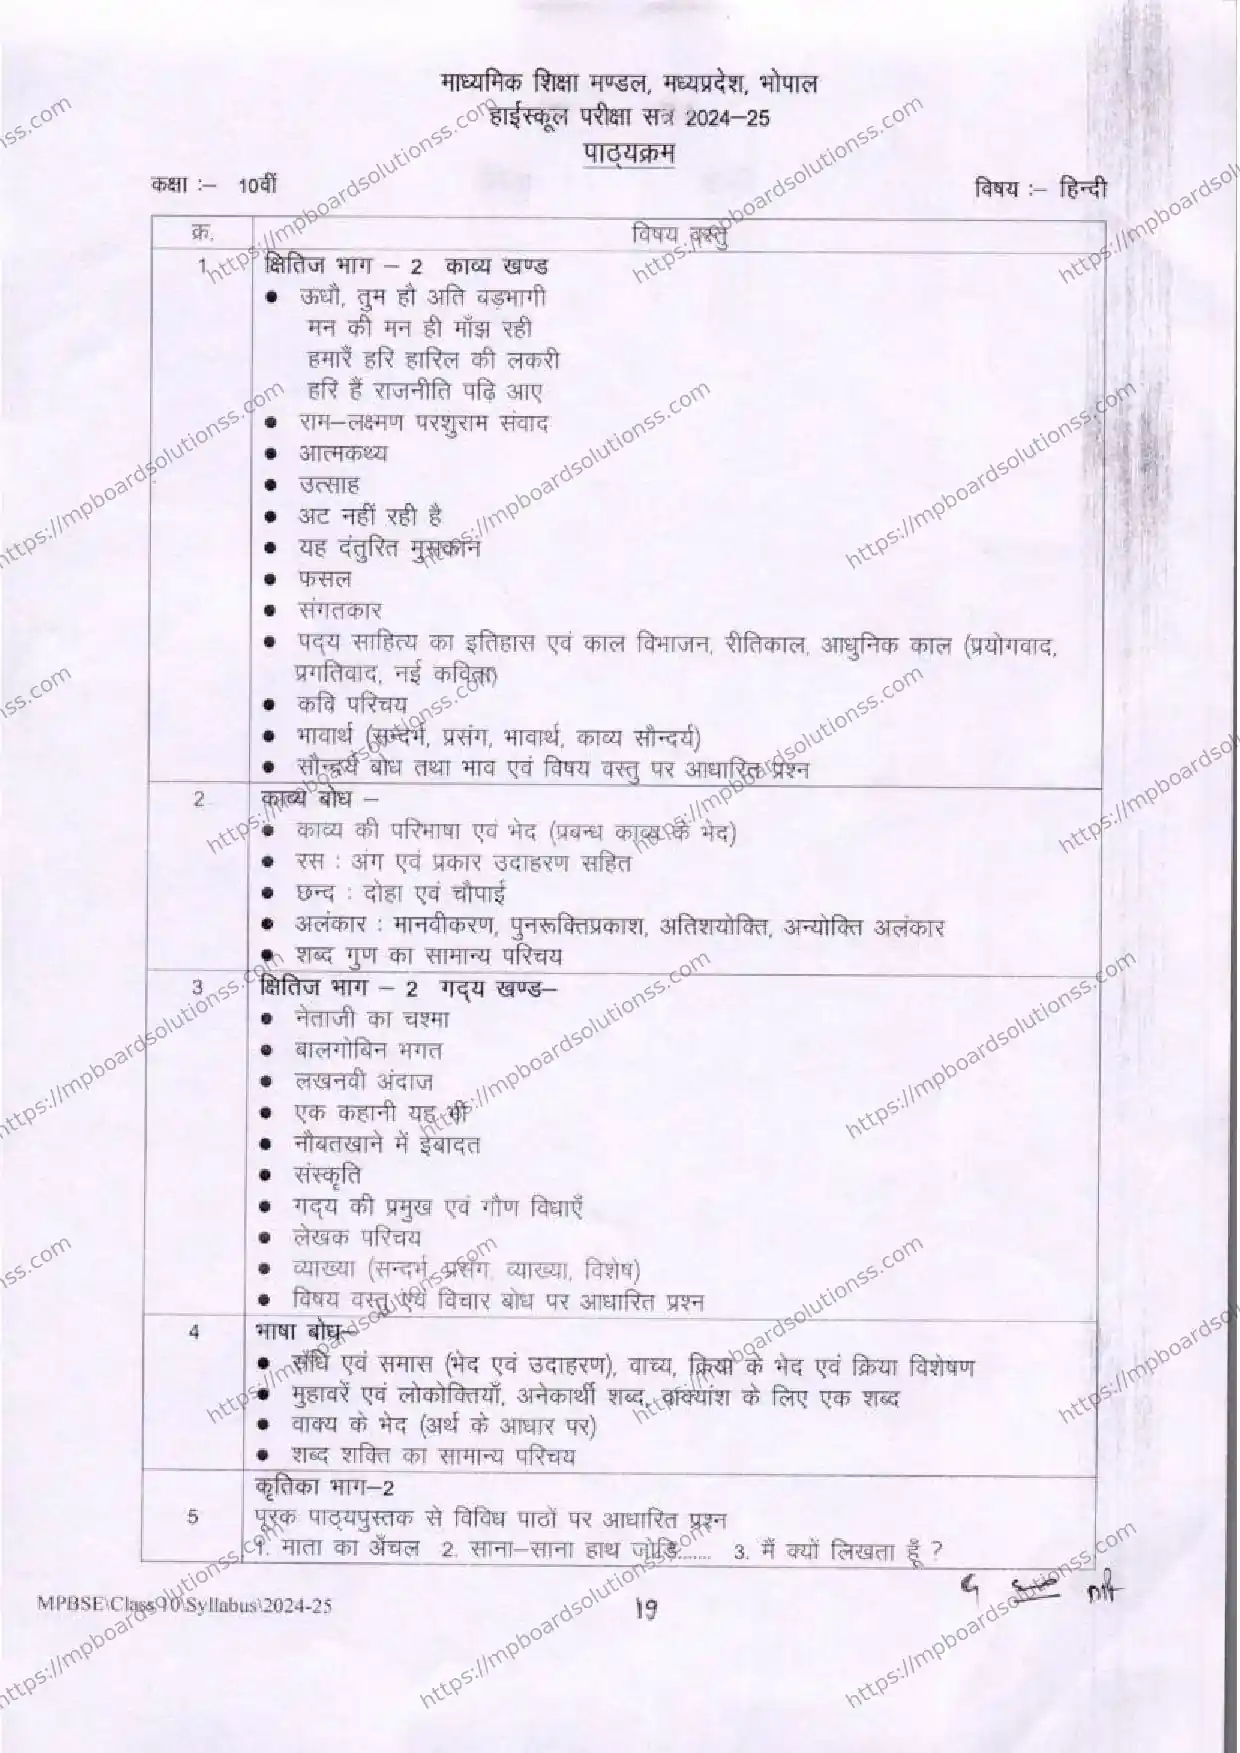 माध्यमिक शिक्षा मण्डल, मध्यप्रदेश, भोपाल
हाईस्कूल परीक्षा सत्र 2024–25
पाठ्यक्रम
कक्षा :– 10वीं विषय :– हिन्दी
क्र. विषय वस्तु
1 क्षितिज भाग – 2 काव्य खण्ड
● ऊधौ, तुम हौ अति बड़भागी
मन की मन ही माँझ रही
हमारैं हरि हारिल की लकरी
हरि हैं राजनीति पढ़ि आए
● राम–लक्ष्मण परशुराम संवाद
● आत्मकथ्य
● उत्साह
● अट नहीं रही है
● यह दंतुरित मुसकान
● फसल
● संगतकार
● पद्य साहित्य का इतिहास एवं काल विभाजन, रीतिकाल, आधुनिक काल (प्रयोगवाद,
प्रगतिवाद, नई कविता)
● कवि परिचय
● भावार्थ (सन्दर्भ, प्रसंग, भावार्थ, काव्य सौन्दर्य)
● सौन्दर्य बोध तथा भाव एवं विषय वस्तु पर आधारित प्रश्न
2 काव्य बोध –
● काव्य की परिभाषा एवं भेद (प्रबन्ध काव्य के भेद)
● रस : अंग एवं प्रकार उदाहरण सहित
● छन्द : दोहा एवं चौपाई
● अलंकार : मानवीकरण, पुनरूक्तिप्रकाश, अतिशयोक्ति, अन्योक्ति अलंकार
● शब्द गुण का सामान्य परिचय
3 क्षितिज भाग – 2 गद्य खण्ड–
● नेताजी का चश्मा
● बालगोबिन भगत
● लखनवी अंदाज
● एक कहानी यह भी
● नौबतखाने में इबादत
● संस्कृति
● गद्य की प्रमुख एवं गौण विधाएँ
● लेखक परिचय
● व्याख्या (सन्दर्भ, प्रसंग, व्याख्या, विशेष)
● विषय वस्तु एवं विचार बोध पर आधारित प्रश्न
4 भाषा बोध–
● संधि एवं समास (भेद एवं उदाहरण), वाच्य, क्रिया के भेद एवं क्रिया विशेषण
● मुहावरें एवं लोकोक्तियाँ, अनेकार्थी शब्द, वाक्यांश के लिए एक शब्द
● वाक्य के भेद (अर्थ के आधार पर)
● शब्द शक्ति का सामान्य परिचय
कृतिका भाग–2
5 पूरक पाठ्यपुस्तक से विविध पाठों पर आधारित प्रश्न
1. माता का अँचल 2. साना–साना हाथ जोड़ि...... 3. मैं क्यों लिखता हूँ ?
MPBSE\Class10\Syllabus\2024-25 19
https://mpboardsolutionss.com